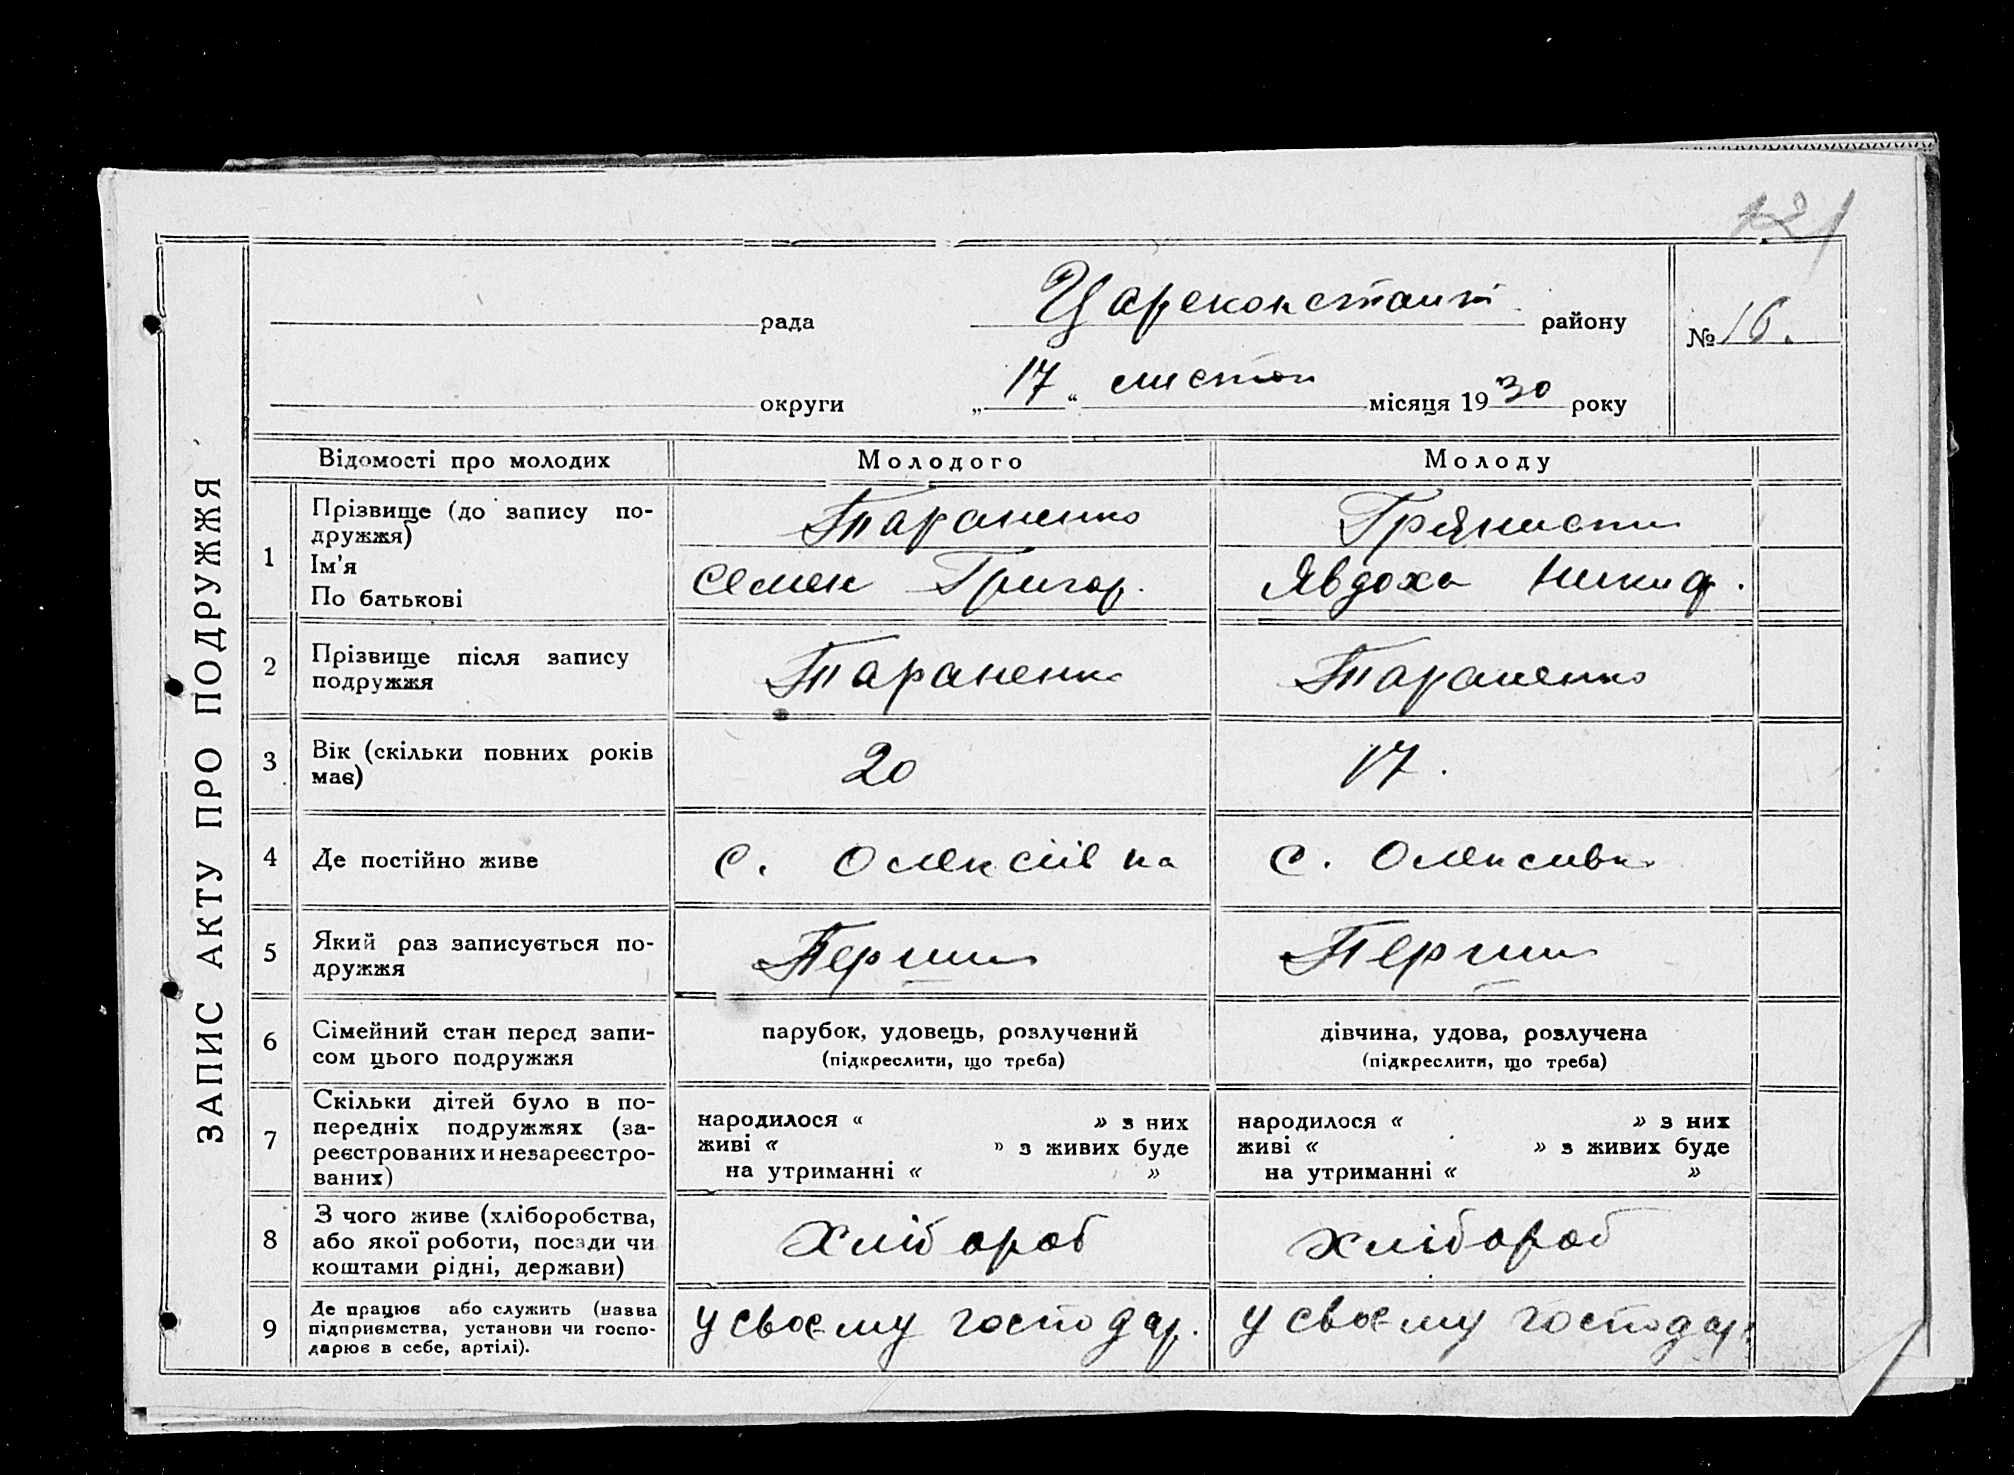 121
ЗАПИС АКТУ ПРО ПОДРУЖЖЯ
рада Цареконстант. району
№ 16.
округи „17“ листоп місяця 1930 року
Відомості про молодих Молодого Молоду
1 Прізвище (до запису по-
дружжя) Тараненко
Ім'я
По батькові Семен Григор. Явдоха Никиф.
2 Прізвище після запису
подружжя Тараненко Тараненко
3 Вік (скільки повних років
має) 20 17.
4 Де постійно живе с. Олексіівка с. Олексивка
5 Який раз записується по-
дружжя Перший Перший
6 Сімейний стан перед запи-
сом цього подружжя
парубок, удовець, розлучений
(підкреслити, що треба)
дівчина, удова, розлучена
(підкреслити, що треба)
7 Скільки дітей було в по-
передніх подружжях (за-
реєстрованих и незареєстро-
ваних)
народилося « » з них
живі « » з живих буде
на утриманні « »
народилося « » з них
живі « » з живих буде
на утриманні « »
8 З чого живе (хліборобства,
або якої роботи, посади чи
коштами рідні, держави)
Хлібороб хлібороб
9 Де працює або служить (назва
підприємства, установи чи госпо-
дарює в себе, артілі).
у своєму господар. у своєму господар.